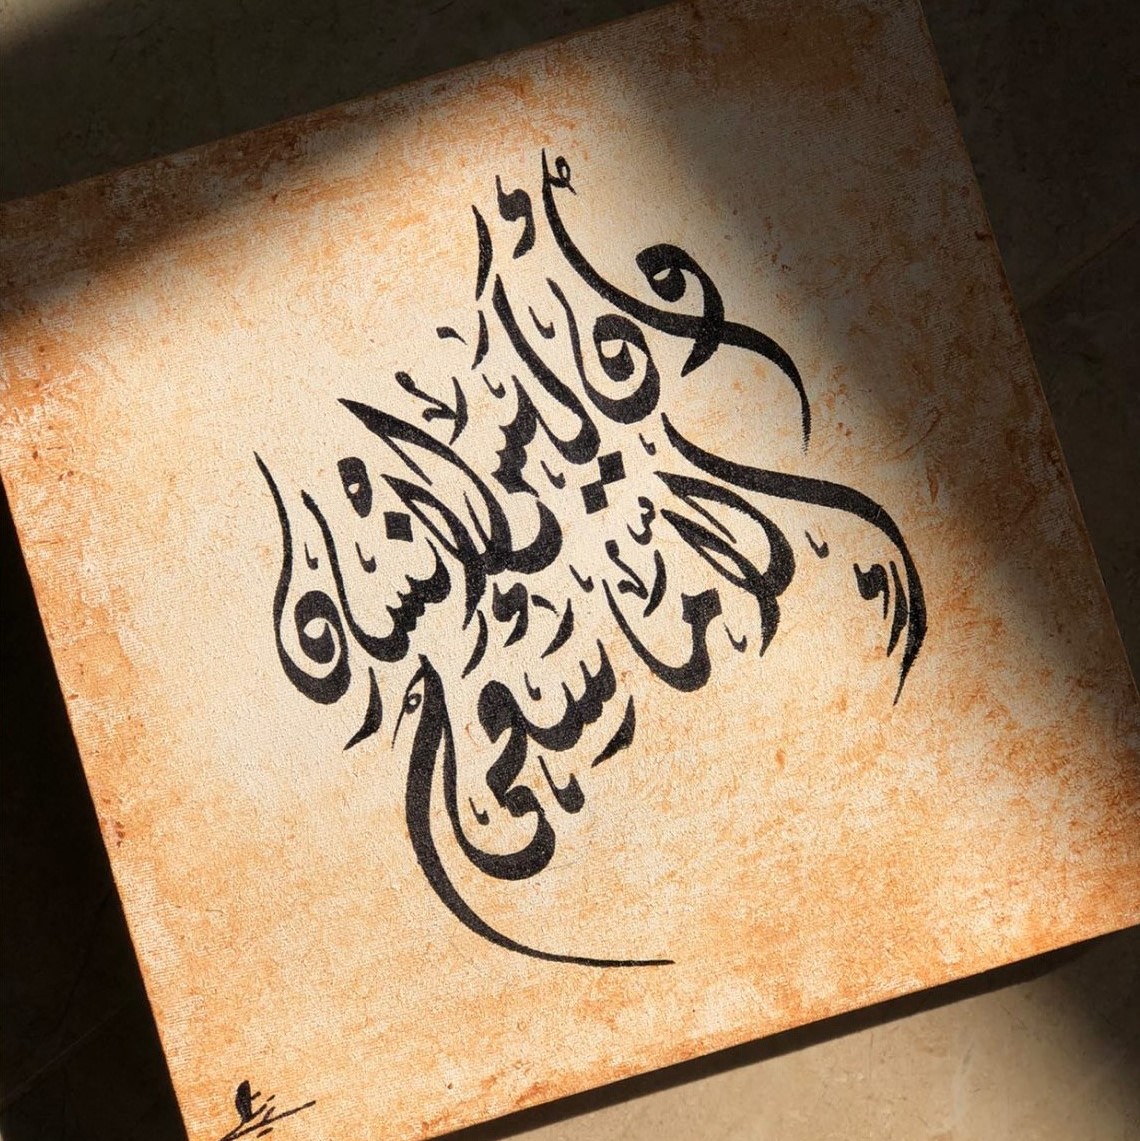 وأن ليس للإنسان
إلا ما سعى